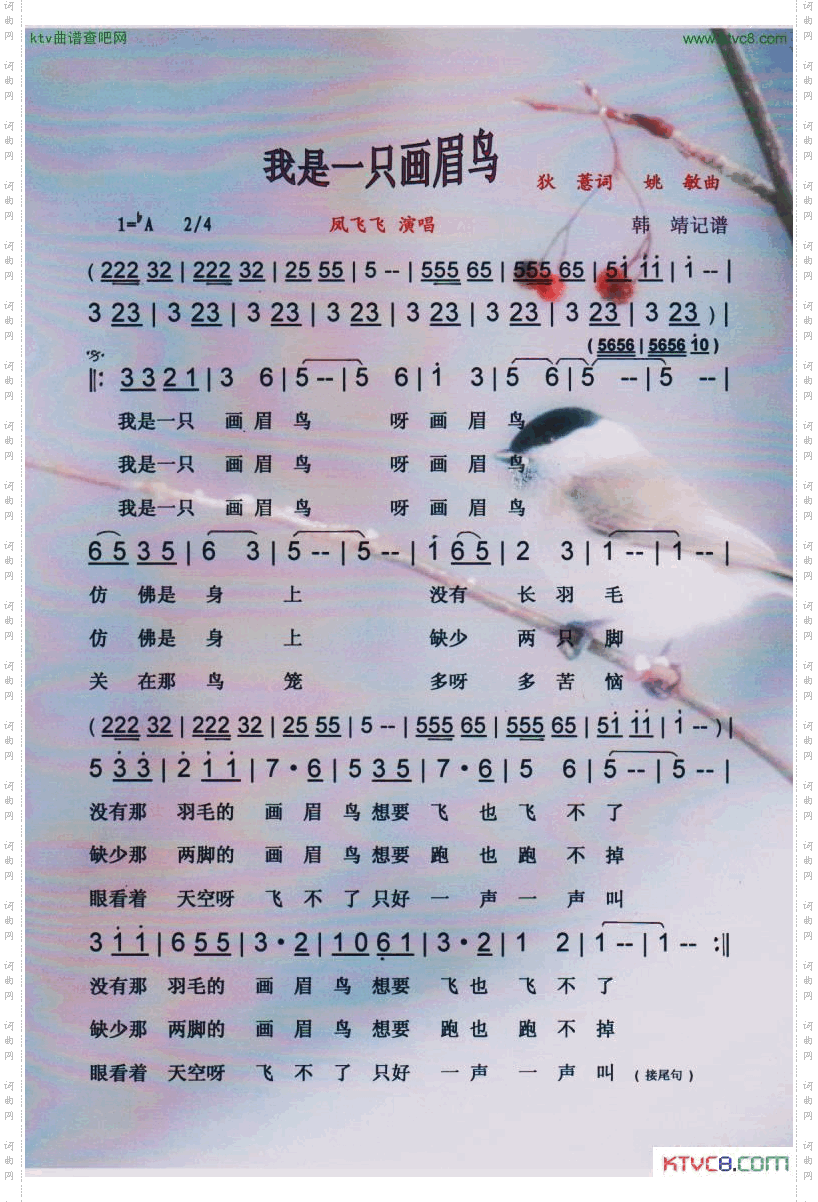 ktv曲谱查吧网 www.ktvc8.com
我是一只画眉鸟
狄 薏词 姚 敏曲
1=♭A 2/4 凤飞飞 演唱 韩 靖记谱
( 222 32 | 222 32 | 25 55 | 5 -- | 555 65 | 555 65 | 5i̇ i̇i̇ | i̇ -- |
3 23 | 3 23 | 3 23 | 3 23 | 3 23 | 3 23 | 3 23 | 3 23 ) |
( 5656 | 5656 i̇0 )
‖: 3 3 2 1 | 3 6 | 5 -- | 5 6 | i̇ 3 | 5 6 | 5 -- | 5 -- |
我是一只 画眉 鸟 呀 画 眉 鸟
我是一只 画眉 鸟 呀 画 眉 鸟
我是一只 画眉 鸟 呀 画 眉 鸟
6 5 3 5 | 6 3 | 5 -- | 5 -- | i̇ 6 5 | 2 3 | 1 -- | 1 -- |
仿 佛是 身 上 没有 长 羽 毛
仿 佛是 身 上 缺少 两 只 脚
关 在那 鸟 笼 多呀 多 苦 恼
( 222 32 | 222 32 | 25 55 | 5 -- | 555 65 | 555 65 | 5i̇ i̇i̇ | i̇ -- ) |
5 3̇ 3̇ | 2̇ i̇ i̇ | 7 · 6 | 5 3 5 | 7 · 6 | 5 6 | 5 -- | 5 -- |
没有那 羽毛的 画 眉 鸟 想要 飞 也 飞 不 了
缺少那 两脚的 画 眉 鸟 想要 跑 也 跑 不 掉
眼看着 天空呀 飞 不 了 只好 一 声 一 声 叫
3 i̇ i̇ | 6 5 5 | 3 · 2 | 1 0 6̣ 1 | 3 · 2 | 1 2 | 1 -- | 1 -- :‖
没有那 羽毛的 画 眉 鸟 想要 飞 也 飞 不 了
缺少那 两脚的 画 眉 鸟 想要 跑 也 跑 不 掉
眼看着 天空呀 飞 不 了 只好 一 声 一 声 叫 ( 接尾句 )
KTVC8.COM